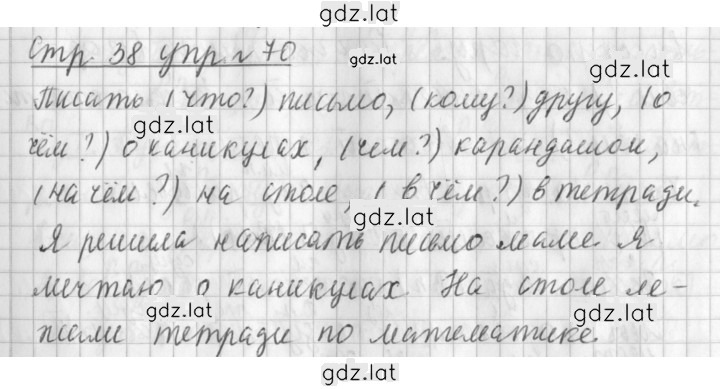 gdz.lat
Стр. 38 упр. № 70
gdz.lat
gdz.lat
Писать (что?) письмо, (кому?) другу, (о
gdz.lat
чём?) о каникулах, (чем?) карандашом,
(на чём?) на столе, (в чём?) в тетради.
gdz.lat
Я решила написать письмо маме. Я
мечтаю о каникулах. На столе ле-
gdz.lat
gdz.lat
жали тетради по математике.
gdz.lat